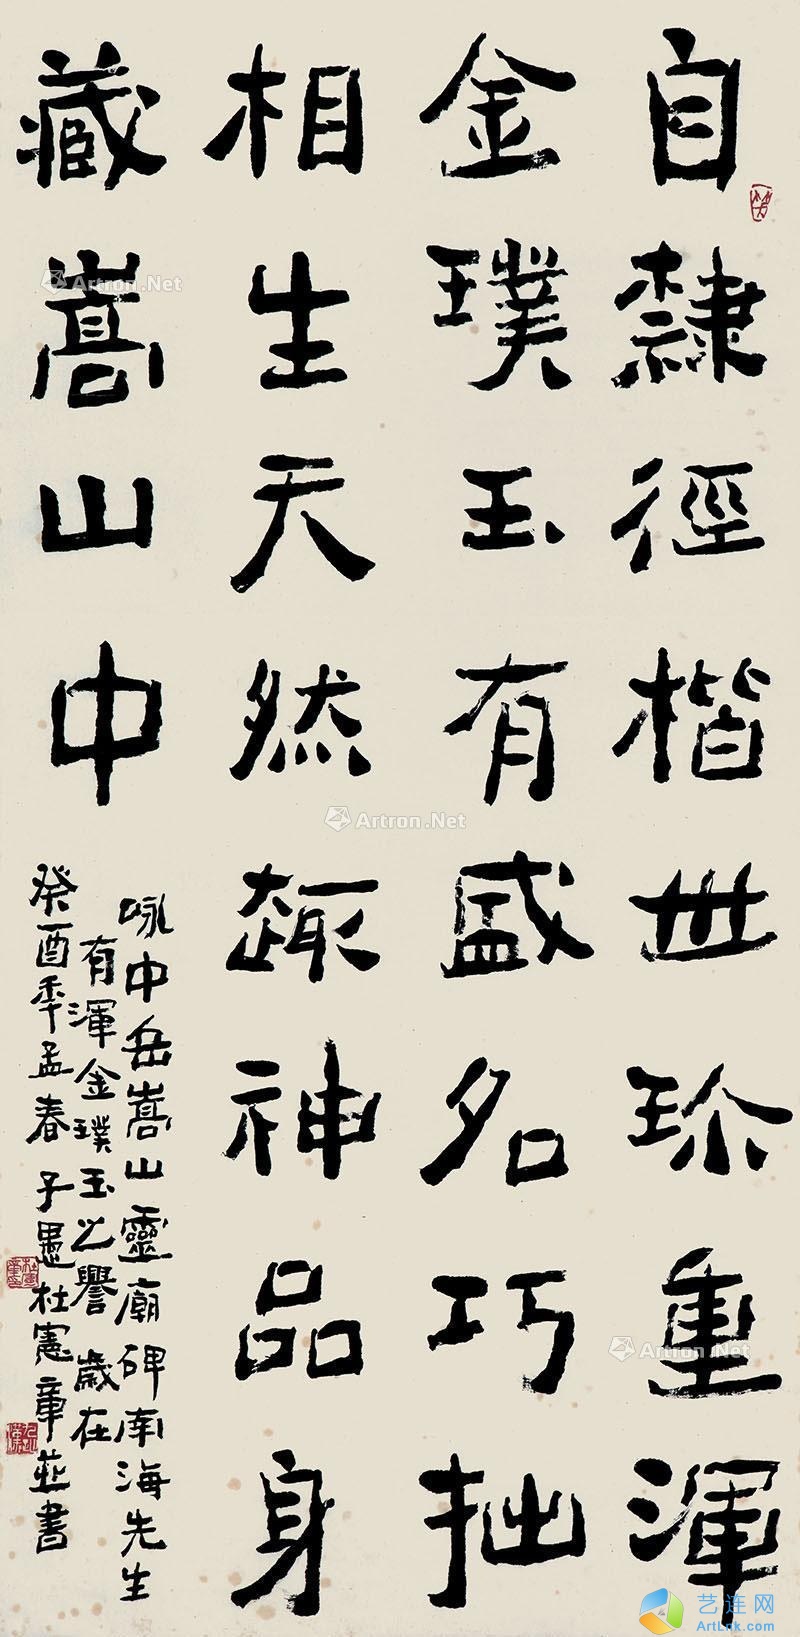 自隸徑楷世珍重渾
金璞玉有盛名巧拙
相生天然趣神品身
藏嵩山中
咏中岳嵩山靈廟碑南海先生
有渾金璞玉之譽歲在
癸酉年孟春子愚杜憲章並書
Artron.Net
Artron.Net
Artron.Net
艺连网
ArtLnk.com